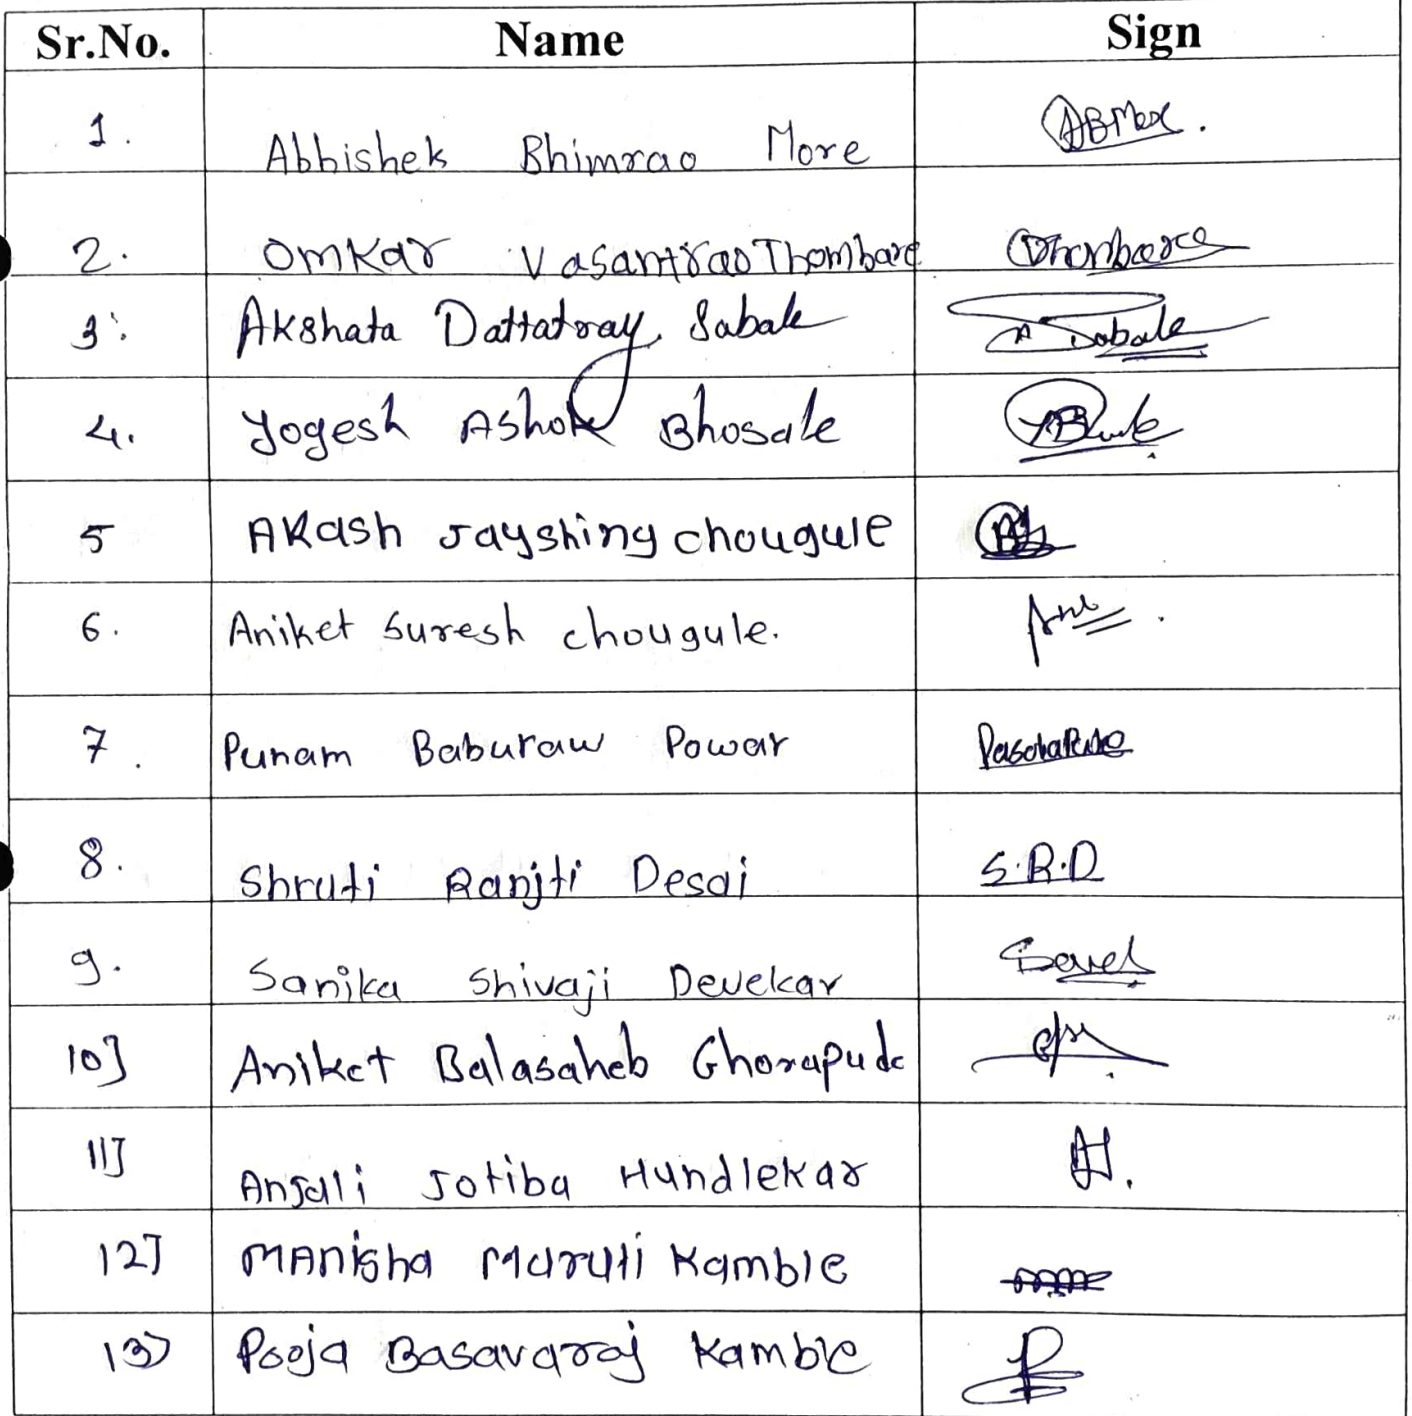 Sr.No. Name Sign
1. Abhishek Bhimrao More ABMore.
2. Omkar Vasantrao Thombare OThombare
3. Akshata Dattatray Sabale A Sabale
4. Yogesh Ashok Bhosale
5 Akash Jayshing chougule
6. Aniket Suresh chougule.
7. Punam Baburaw Powar
8. Shruti Ranjti Desai S.R.D
9. Sanika Shivaji Devekar
10] Aniket Balasaheb Ghorapude
11] Anjali Jotiba Hundlekar
12] MAnisha Maruti Kamble
13) Pooja Basavaraj Kamble